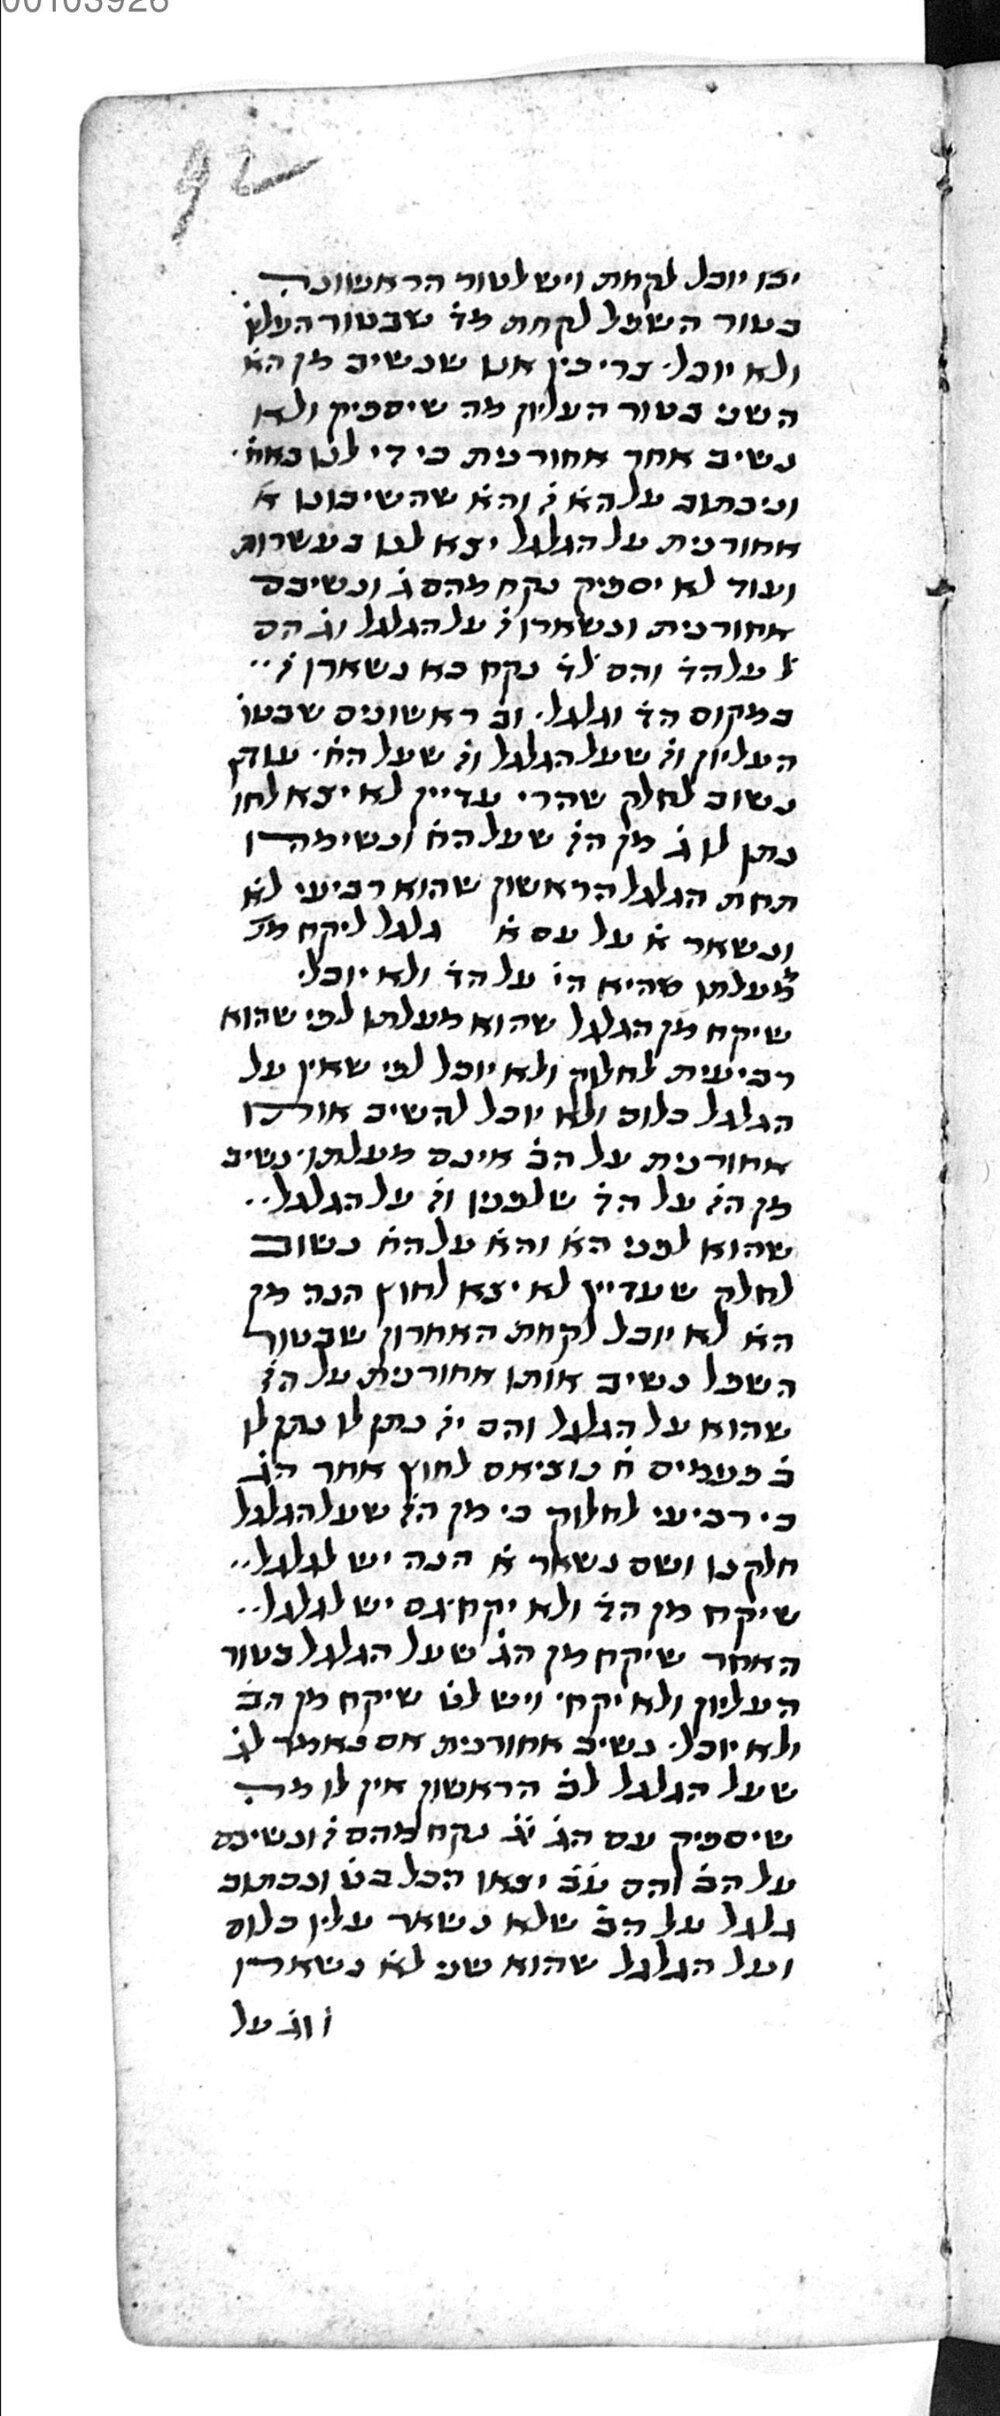 00103926
92
יבו יוכל לקחת ויש לטור הראשונה
בטור השפל לקחת מד̇ שבטור העליו̇
ולא יוכל. צריכין אנו שנשיב מן הא̇
השני בטור העליון מה שיספיק ולא
נשיב אחד אחורנית כי די לנו באח̇.
וניכתוב על הא̇ ז̇ והא̇ שהשיבונו א̇
אחורנית על הגלגל יצא לנו בעשרות
ועוד לא יספיק נקח מהם ג̇ ונשיבם
אחורנית ונשארו ז̇ על הגלגל וג̇ הם
ל̇ על הד̇ והם ל̇ד̇ נקח כא נשארו ז̇..
במקום הד̇ וגלגל. וב̇ ראשונים שבטו̇
העליון וז̇ שעל הגלגל וז̇ שעל הח̇. עודן
נשוב לחלק שהרי עדיין לא יצא לחו
נתן לו ג̇ מן הז̇ שעל הח̇ ונשימהו
תחת הגלגל הראשון שהוא רביעי לא̇
ונשאר א̇ על עם א̇ גלגל ליקח מ
מעלתו שהיא הי̇ על הד̇ ולא יוכל.
שיקח מן הגלגל שהוא מעלתו לפי שהוא
רביעית לחלוק ולא יוכל לפי שאין על
הגלגל כלום ולא יוכל להשיב אותו
אחורנית על הב̇ אינם מעלתו. נשיב
מן הז̇ על הד̇ שלפנין וז̇ על הגלגל..
שהוא לפני הא̇ והא̇ על הח̇ נשוב
לחלק שעדיין לא יצא לחוץ הנה מן
הא̇ לא יוכל לקחת האחרון שבטור
השפל נשיב אותו אחורנית על הז̇
שהוא על הגלגל והם יז̇ נתן לו נתן לו
ב̇ פעמים ח̇ נוציאם לחוץ אחר הג̇
כי רביעי לחלוק כי מן הז̇ שעל הגלגל
חלקנו ושם נשאר א̇ הנה יש לגלגל..
שיקח מן הד̇ ולא יקח. גם יש לגלגל..
האחר שיקח מן הג̇ שעל הגלגל בטור
העליון ולא יקח. ויש לט̇ שיקח מן הב̇
ולא יוכל. נשיב אחורנית אם נאמר לג̇
שעל הגלגל לב̇ הראשון אין לו מה
שיספיק עם הג̇ יג̇ נקח מהם ז̇ ונשיבם
על הב̇ והם ע̇ב̇ יצאו הכל בט̇ ונכתוב
גלגל על הב̇ שלא נשאר עליו כלום
ועל הגלגל שהוא שני לא̇ נשארו
ו̇ וג̇ על